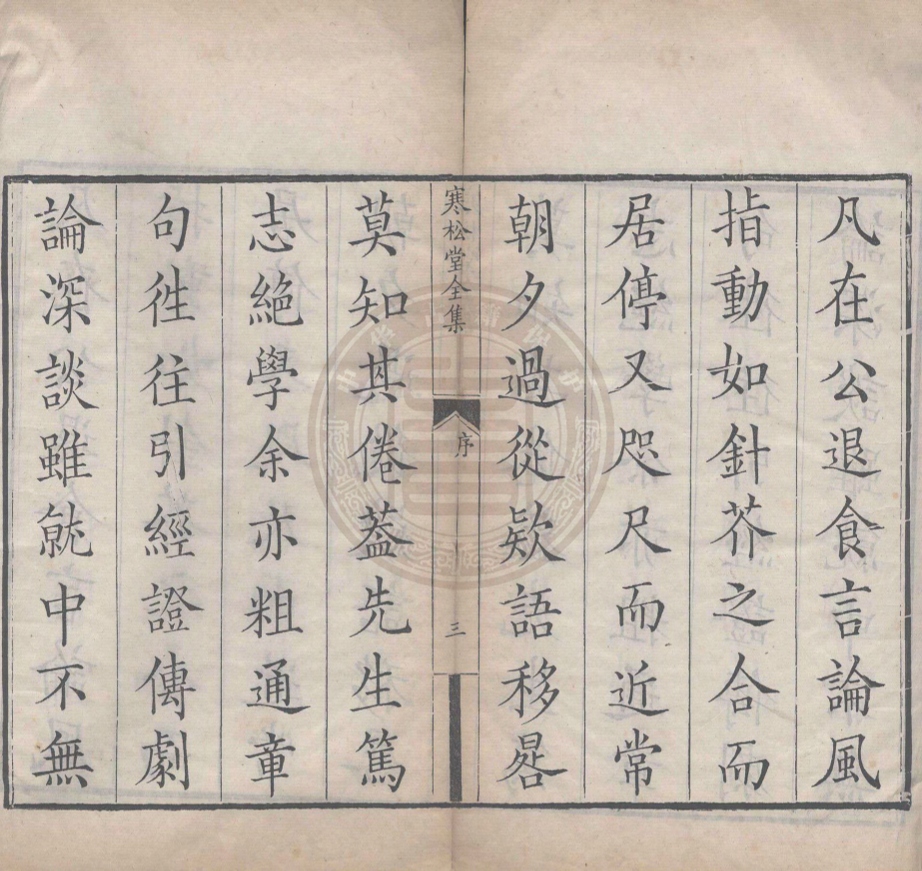 凡在公退食言論風
指動如針芥之合而
居停又咫尺而近常
朝夕過從欵語移晷
寒松堂全集
序
三
莫知其倦葢先生篤
志絕學余亦粗通章
句徃往引經證傳劇
論深談雖就中不無